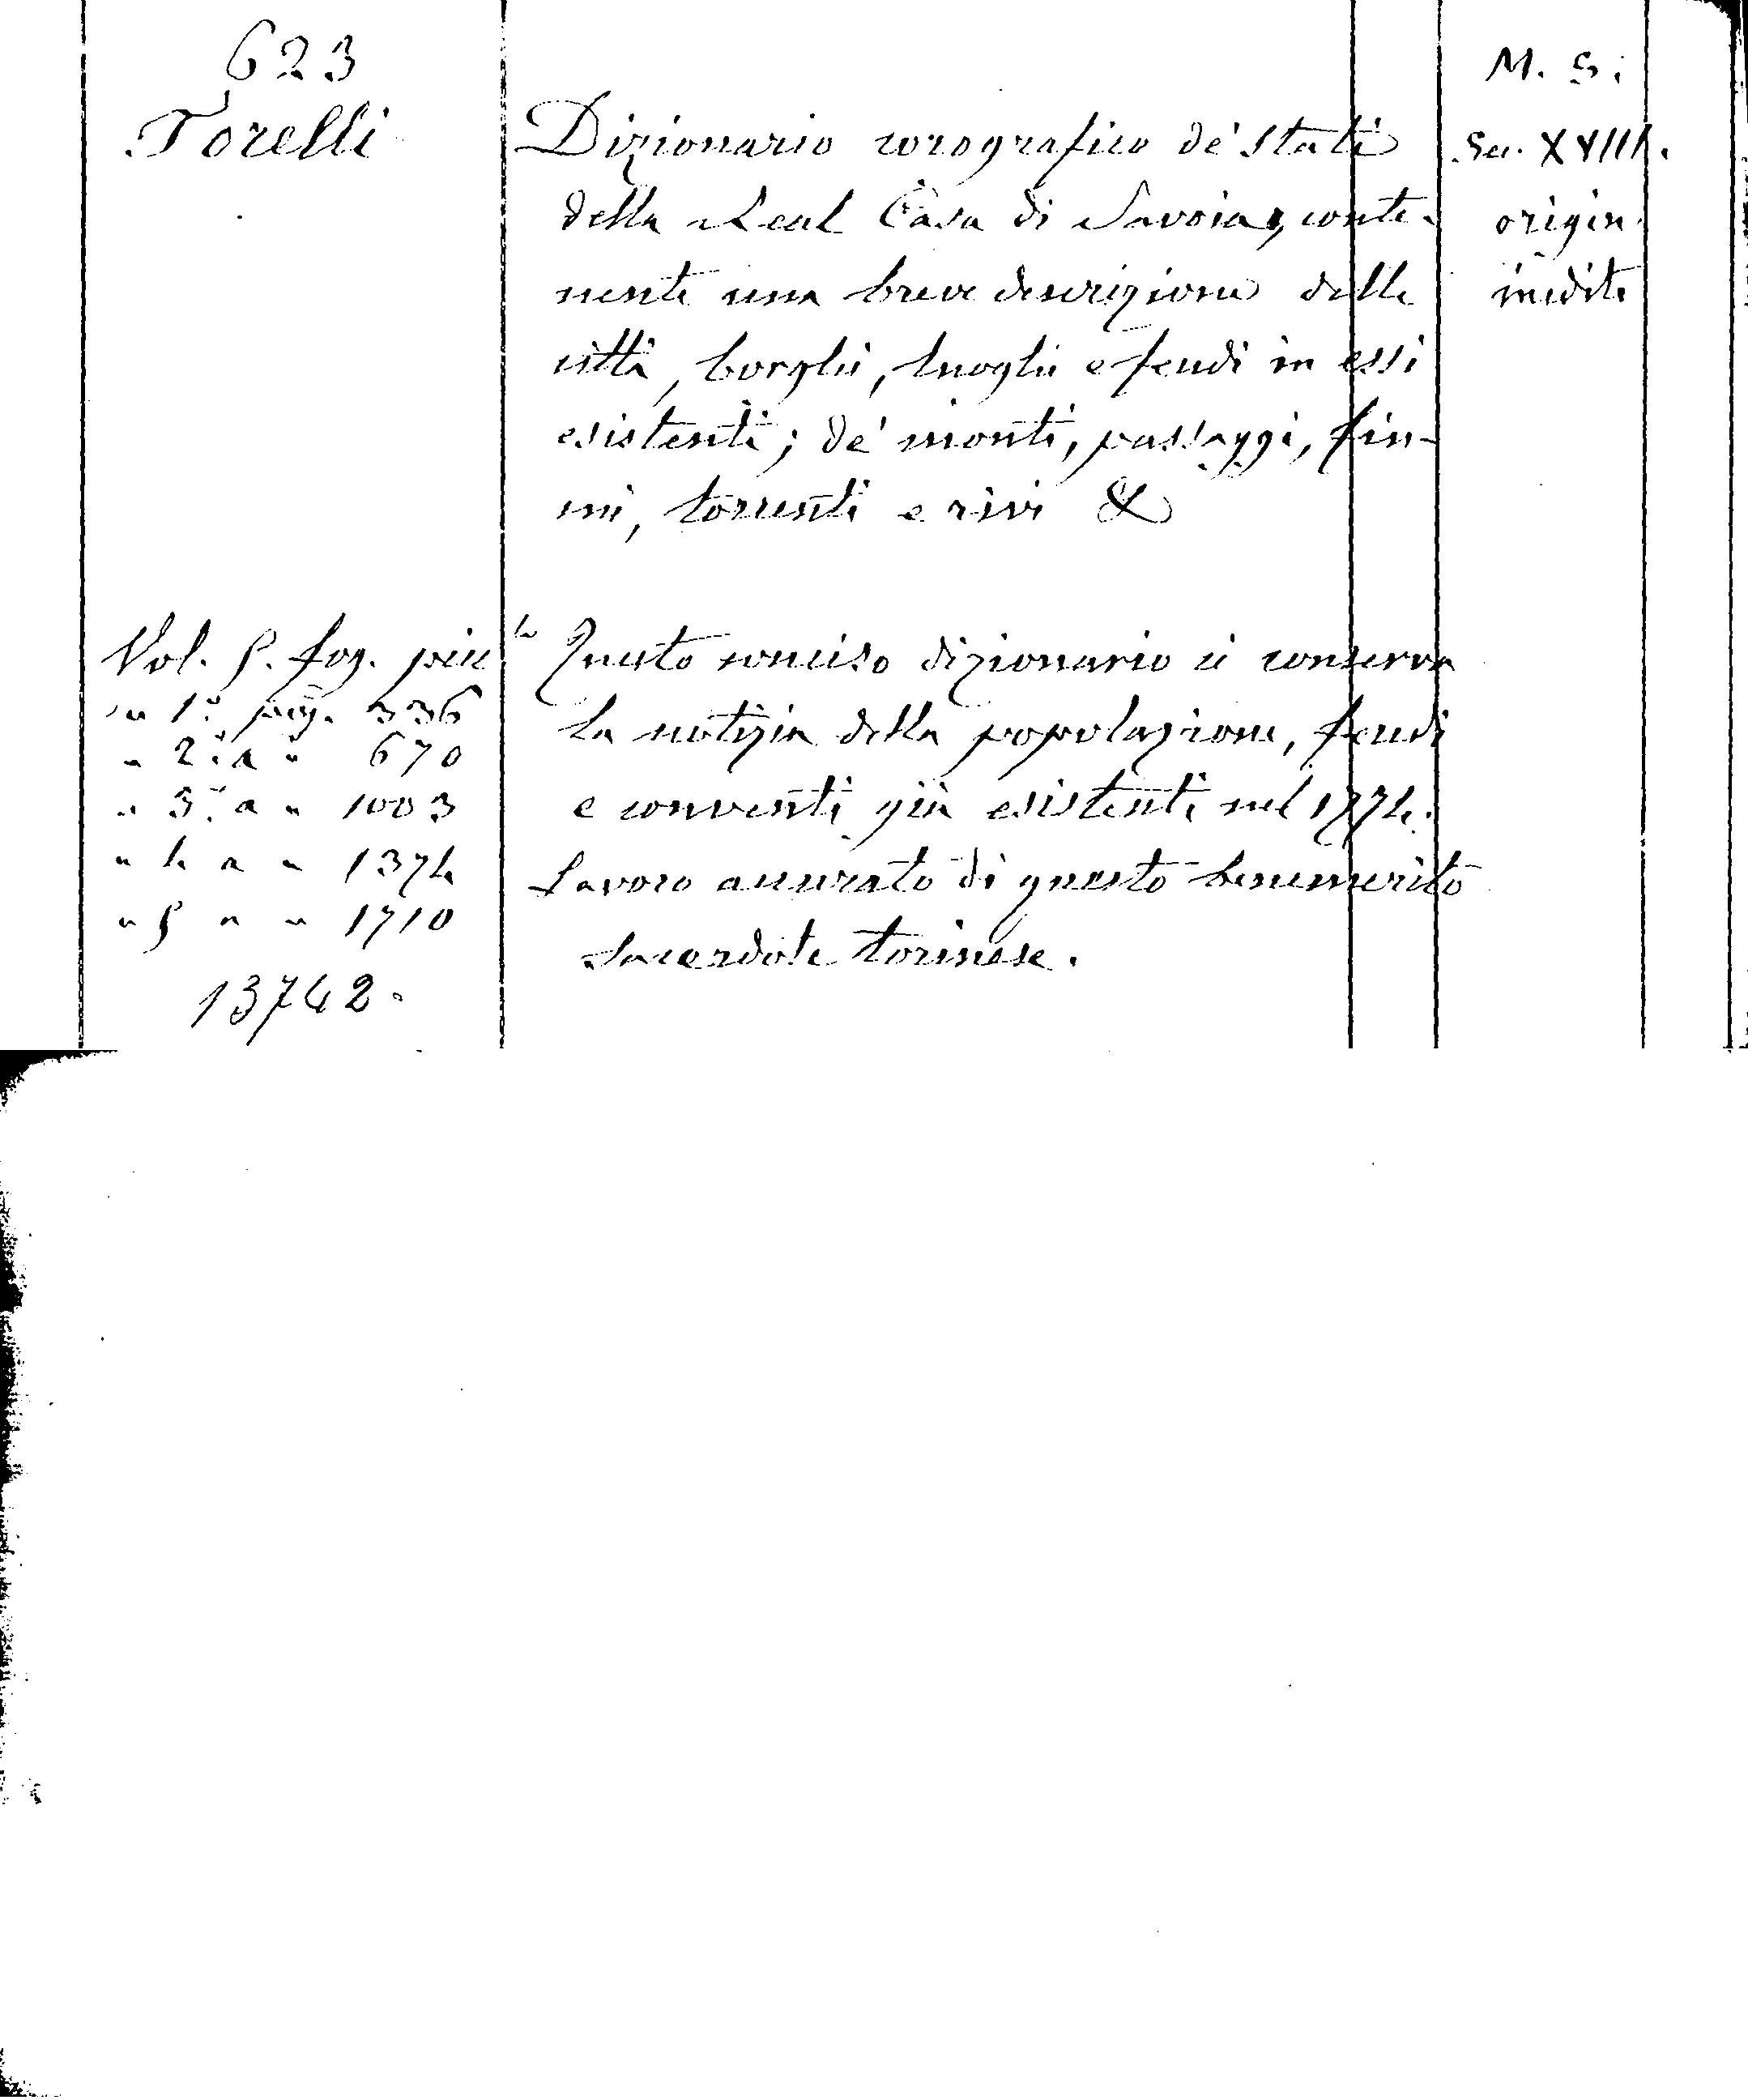 623
Torelli
Dizionario corografico de' Stati
della Real Casa di Savoia, conte-
nente una breve descrizione delle
città, borghi, luoghi e feudi in essi
esistenti; de' monti, passaggi, fiu-
mi, torrenti e rivi &
M. S.
Sec. XVIII.
origin.
inedito
Vol. 5. fog. picc.lo
" 1.° pag. 336
" 2.° " " 670
" 3.° " " 1003
" 4 " " 1374
" 5 " " 1710
13742.
Questo conciso dizionario ci conserva
la notizia della popolazione, feudi
e conventi già esistenti nel 1774.
Lavoro accurato di questo benemerito
sacerdote torinese.